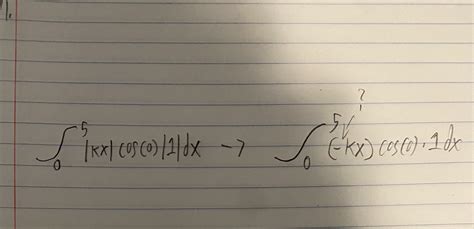 1.
?
∫₀⁵ |kx| cos(0) |1| dx → ∫₀⁵ (-kx) cos(0) · 1 dx